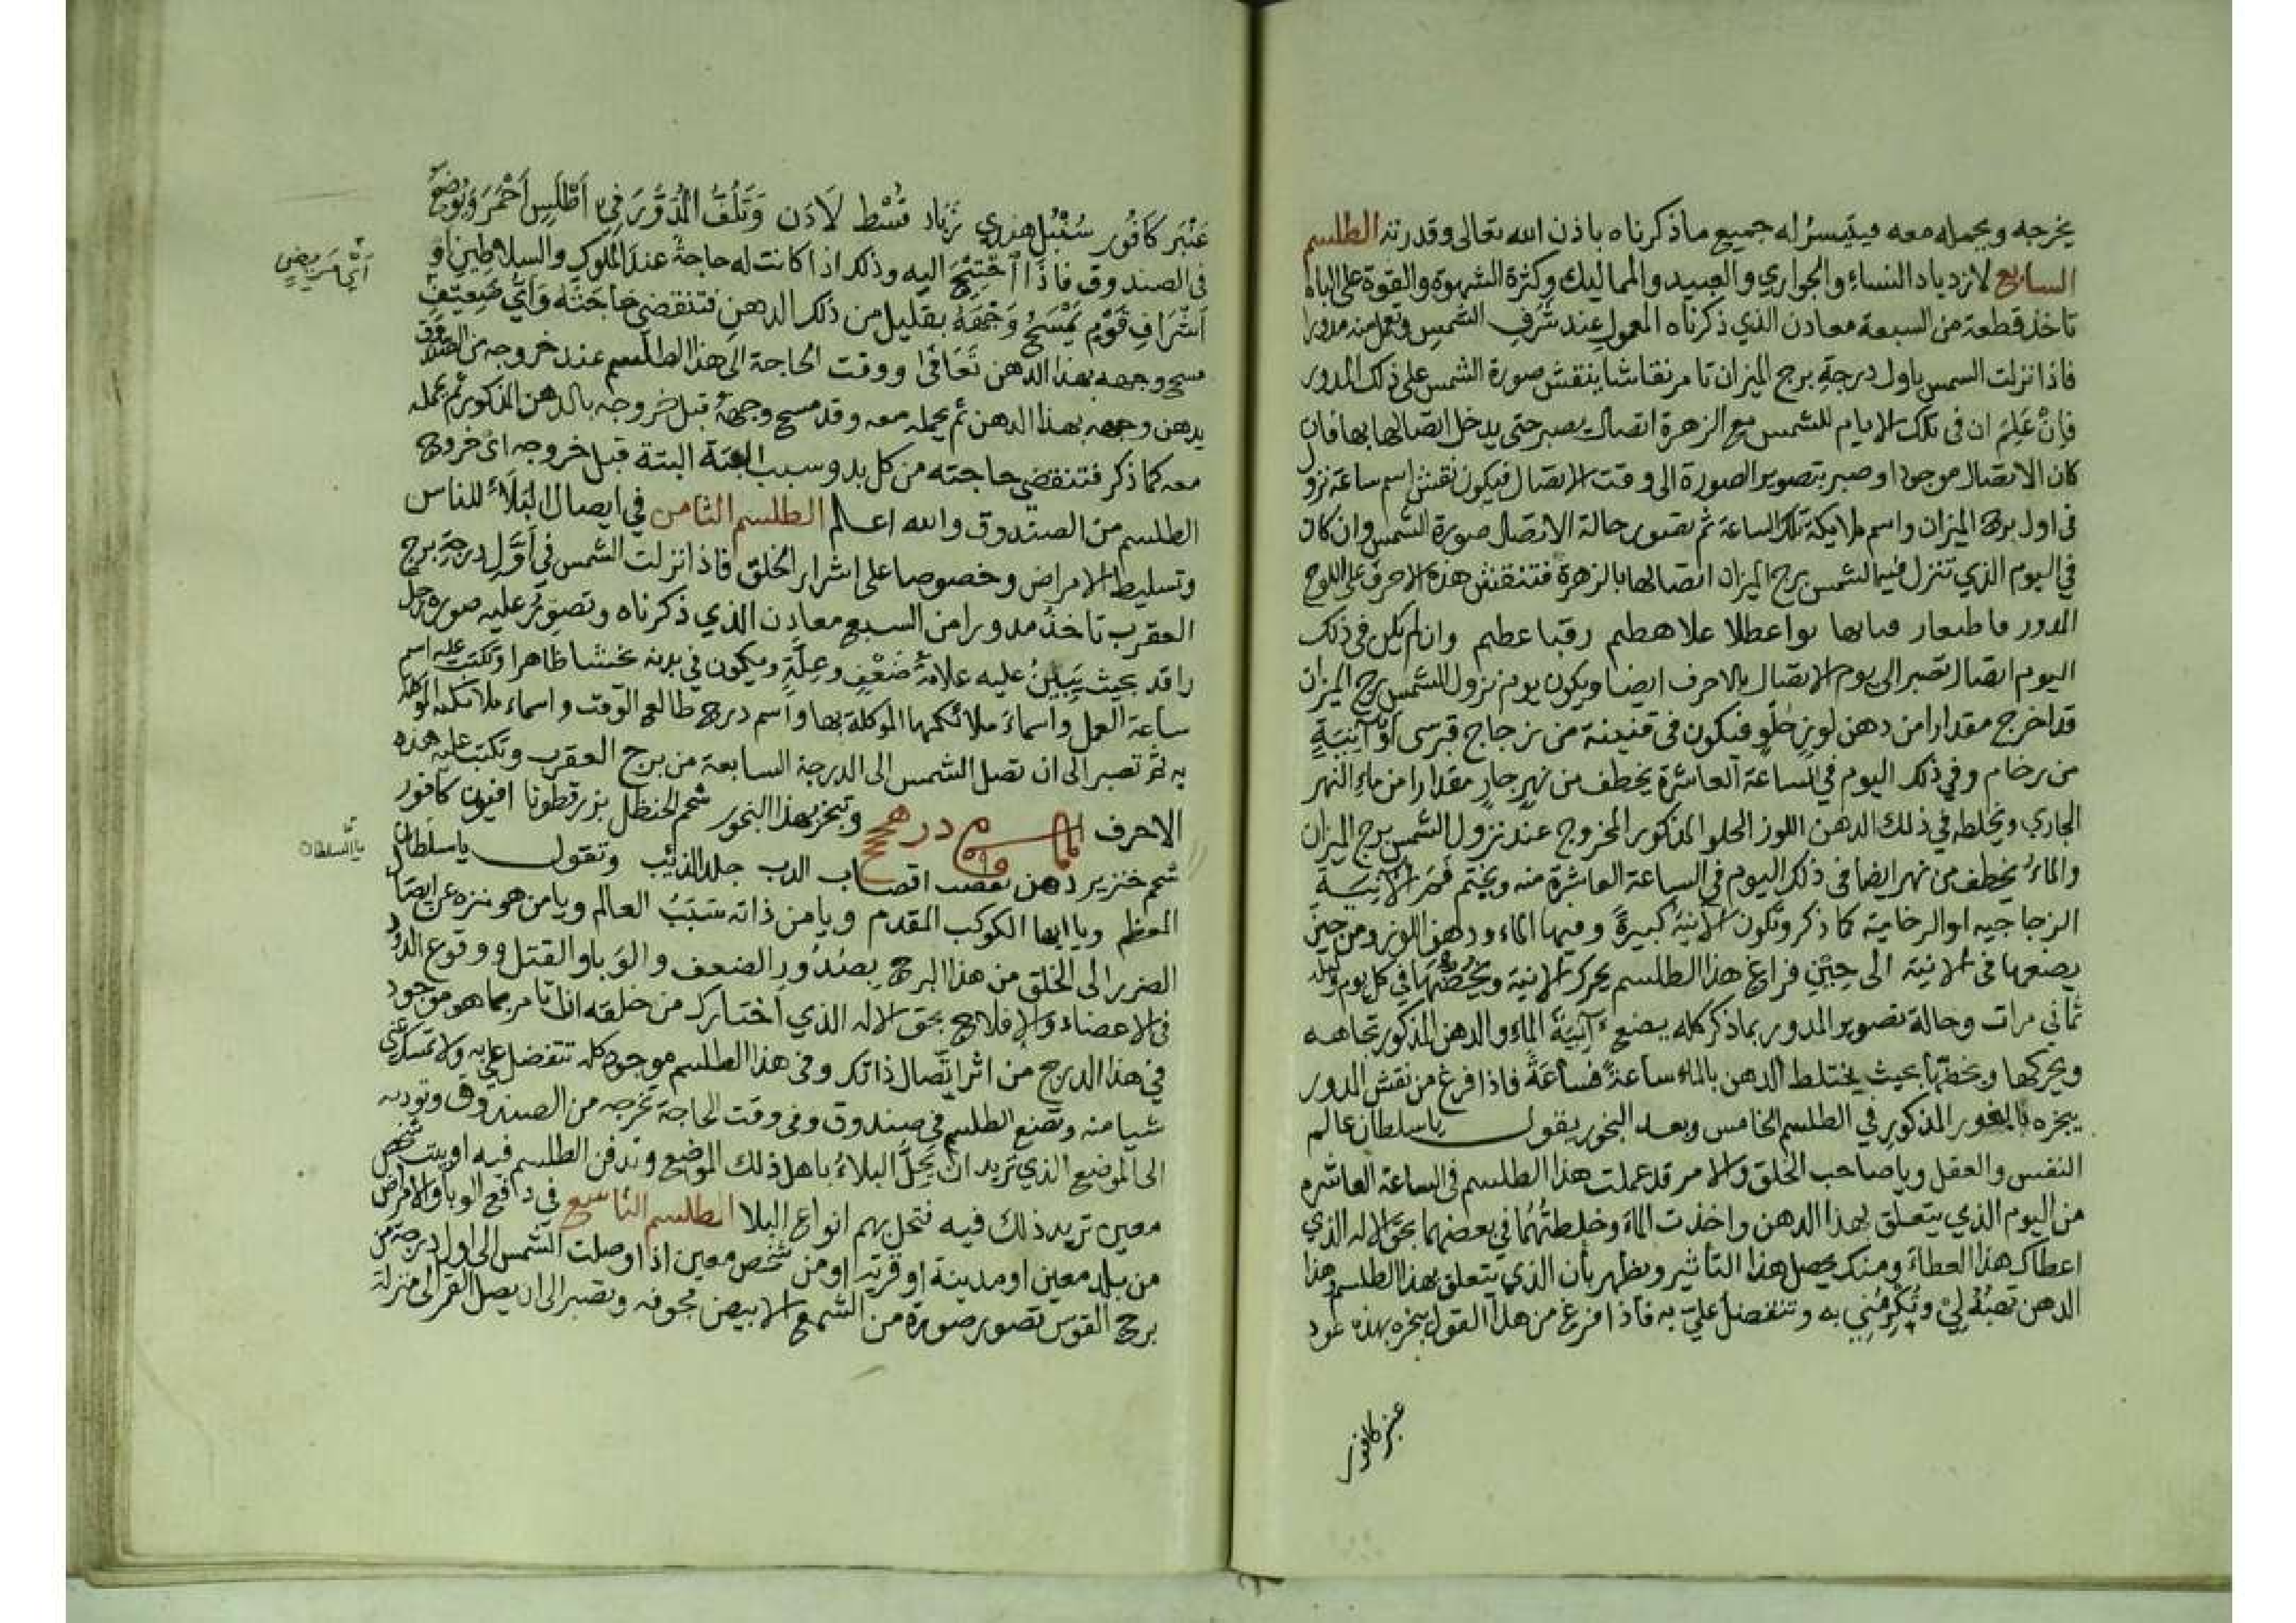 يخرجه ويحمله معه فيتيسر له جميع ما ذكرناه باذن الله تعالى وقدرته الطلسم
السابع لازدياد النساء والجواري والعبيد والمماليك وكثرة الشهوة والقوة على الباه
تاخذ قطعة من السبعة معادن الذي ذكرناه المعمول عند شرف الشمس وتعمل منه مدورا
فاذا نزلت الشمس باول درجة برج الميزان تامر نقاشا ينقش صورة الشمس على ذلك المدور
فإن علم ان في تلك الايام للشمس مع الزهرة اتصالات يصبر حتى يدخل اتصالها بها فان
كان الاتصال موجود او صبر بتصوير الصورة الى وقت الاتصال فيكون نقش اسم ساعة نزول
في اول برج الميزان واسم ملايكة تلك الساعة ثم تصور حالة الاتصال صورة الشمس وان كان
في اليوم الذي تنزل فيه الشمس برج الميزان اتصالها بالزهرة فتنقش هذه الاحرف على اللوح
المدور وان لم يكن في ذلك
اليوم اتصال تصبر الى يوم الاتصال بالاحرف ايضا ويكون يوم نزول الشمس برج الميزان
قد اخرج مقدارا من دهن لوز حلو فيكون في قنينة من زجاج قبرسى او آنية
من رخام وفي ذلك اليوم في الساعة العاشرة يخطف من نهر جار مقدارا من ماء النهر
الجاري ويخلطه في ذلك الدهن اللوز الحلو المذكور المخروج عند نزول الشمس برج الميزان
والماء يخطف من نهر ايضا في ذلك اليوم في الساعة العاشرة منه ويختم فم الآنية
الزجاجيه او الرخامية كما ذكر وتكون الآنية كبيرة وفيها الماء ودهن اللوز ومن حين
يصنعها في الانية الى حين فراغ هذا الطلسم يحرك الانية ويخضها في كل يوم وليلة
ثماني مرات وحالة تصوير المدور بما ذكر كله يضع آنية الماء والدهن المذكور تجاهه
ويحركها ويخضها بحيث يختلط الدهن بالماء ساعة فساعة فاذا فرغ من نقش المدور
يبخره بالبخور المذكور في الطلسم الخامس وبعد البخور يقول ياسلطان عالم
النفس والعقل ويا صاحب الخلق والامر قد عملت هذا الطلسم في الساعة العاشره
من اليوم الذي يتعلق بهذا الدهن واخذت الماء وخلطتهما في بعضهما بحق الاله الذي
اعطاك هذا العطاء ومنك يحصل هذا التاثير ويظهر بأن الذي يتعلق بهذا الطلسم وهذا
الدهن تهبه لي وتكرمني به وتتفضل علي به فاذا فرغ من هذا القول يبخره بهذه عود
عنبر كافور
عنبر كافور سنبل هندي زباد قسط لاذن وتلف المدور في اطلس احمر ويوضع
في الصندوق فاذا احتيج اليه وذلك اذا كانت له حاجة عند الملوك والسلاطين او
اشراف قوم يمسح وجهه بقليل من ذلك الدهن فتنقضي حاجته وأي ضعيف
أي مريض
مسح وجهه بهذا الدهن تعافى ووقت الحاجة الى هذا الطلسم عند خروجه من الصندوق
يدهن وجهه بهذا الدهن ثم يحمله معه وقد مسح وجهه قبل خروجه بالدهن المذكور ثم يحمله
معه كما ذكر فتنقضي حاجته من كل بد وسبب البتة قبل خروجه اي خروج
الطلسم من الصندوق والله اعلم الطلسم الثامن في ايصال البلاء للناس
وتسليط الامراض وخصوصا على اشرار الخلق فاذا نزلت الشمس في أول درجة برج
العقرب تاخذ مدورا من السبع معادن الذي ذكرناه وتصور عليه صورة رجل
راقد بحيث يبين عليه علامة ضعف وعلة ويكون في بدنه ظاهرا وتكتب عليه اسم
ساعة العمل واسماء ملائكتها الموكلة بها واسم درج طالع الوقت واسماء ملائكته الموكلة
به ثم تصبر الى ان تصل الشمس الى الدرجة السابعة من برج العقرب وتكتب عليه هذه
الاحرف وتبخر بهذا البخور شحم الحنظل بزر قطونا افيون كافور
شحم خنزير دهن اقصاب الدب جلد الذئب وتقول ياسلطان
يا السلطان
المعظم ويا ايها الكوكب المقدم ويا من ذاته سبب العالم ويا من هو منزه عن ايصال
الضرر الى الخلق من هذا البرج بصدور الضعف والوبا والقتل ووقوع الدود
في الاعضاء والافلاج بحق الاله الذي اختارك من خلقه ان تامر بما هو موجود
في هذا الدرج من اثر اتصال ذاتك وفي هذا الطلسم موجود كله تتفضل علي به ولا تمسك عني
شيا منه وتضع الطلسم في صندوق وفي وقت الحاجة تخرجه من الصندوق وتوديه
الى الموضع الذي تريد ان يحل البلاء باهل ذلك الموضع وتدفن الطلسم فيه او بيت شخص
معين تريد ذلك فيه فتحل بهم انواع البلا الطلسم التاسع في دافع الوبا والامراض
من بلد معين او مدينة او قرية او من شخص معين اذا وصلت الشمس الى اول درجة من
برج القوس تصور صورة من الشمع الابيض مجوفه وتصبر الى ان يصل القمر الى منزلة